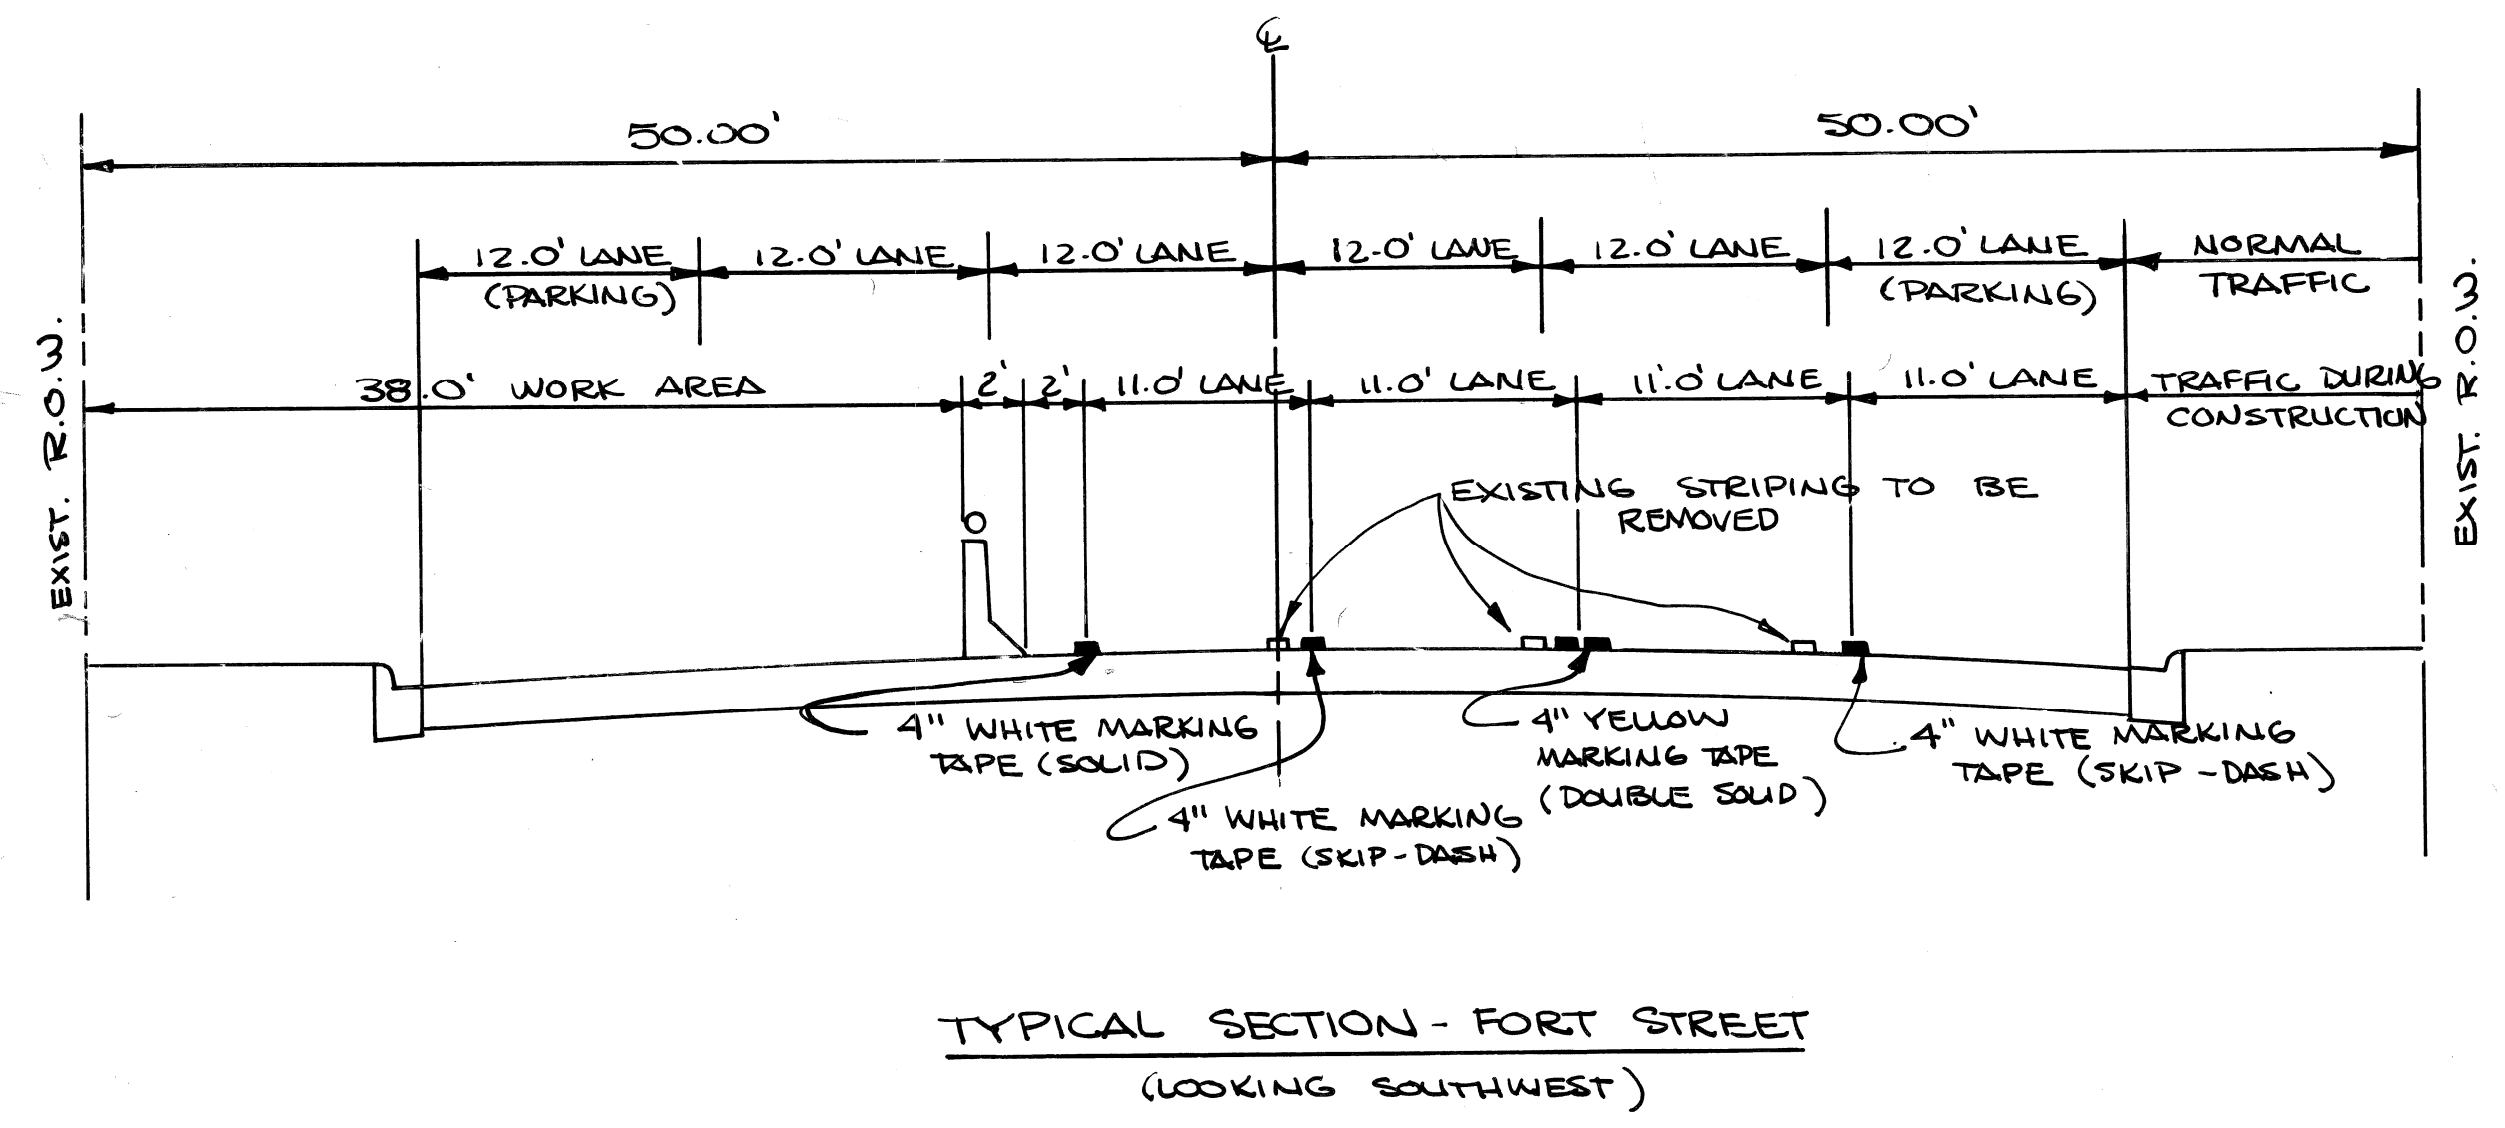 ℄
50.00' 50.00'
12.0' LANE 12.0' LANE 12.0' LANE 12.0' LANE 12.0' LANE 12.0' LANE NORMAL
(PARKING) (PARKING) TRAFFIC
38.0' WORK AREA 2' 2' 11.0' LANE 11.0' LANE 11.0' LANE 11.0' LANE TRAFFIC DURING
CONSTRUCTION
EXIST. R.O.W.
EXIST. R.O.W.
EXISTING STRIPING TO BE
REMOVED
4" WHITE MARKING
TAPE (SOLID)
4" WHITE MARKING
TAPE (SKIP-DASH)
4" YELLOW
MARKING TAPE
(DOUBLE SOLID)
4" WHITE MARKING
TAPE (SKIP-DASH)
TYPICAL SECTION - FORT STREET
(LOOKING SOUTHWEST)